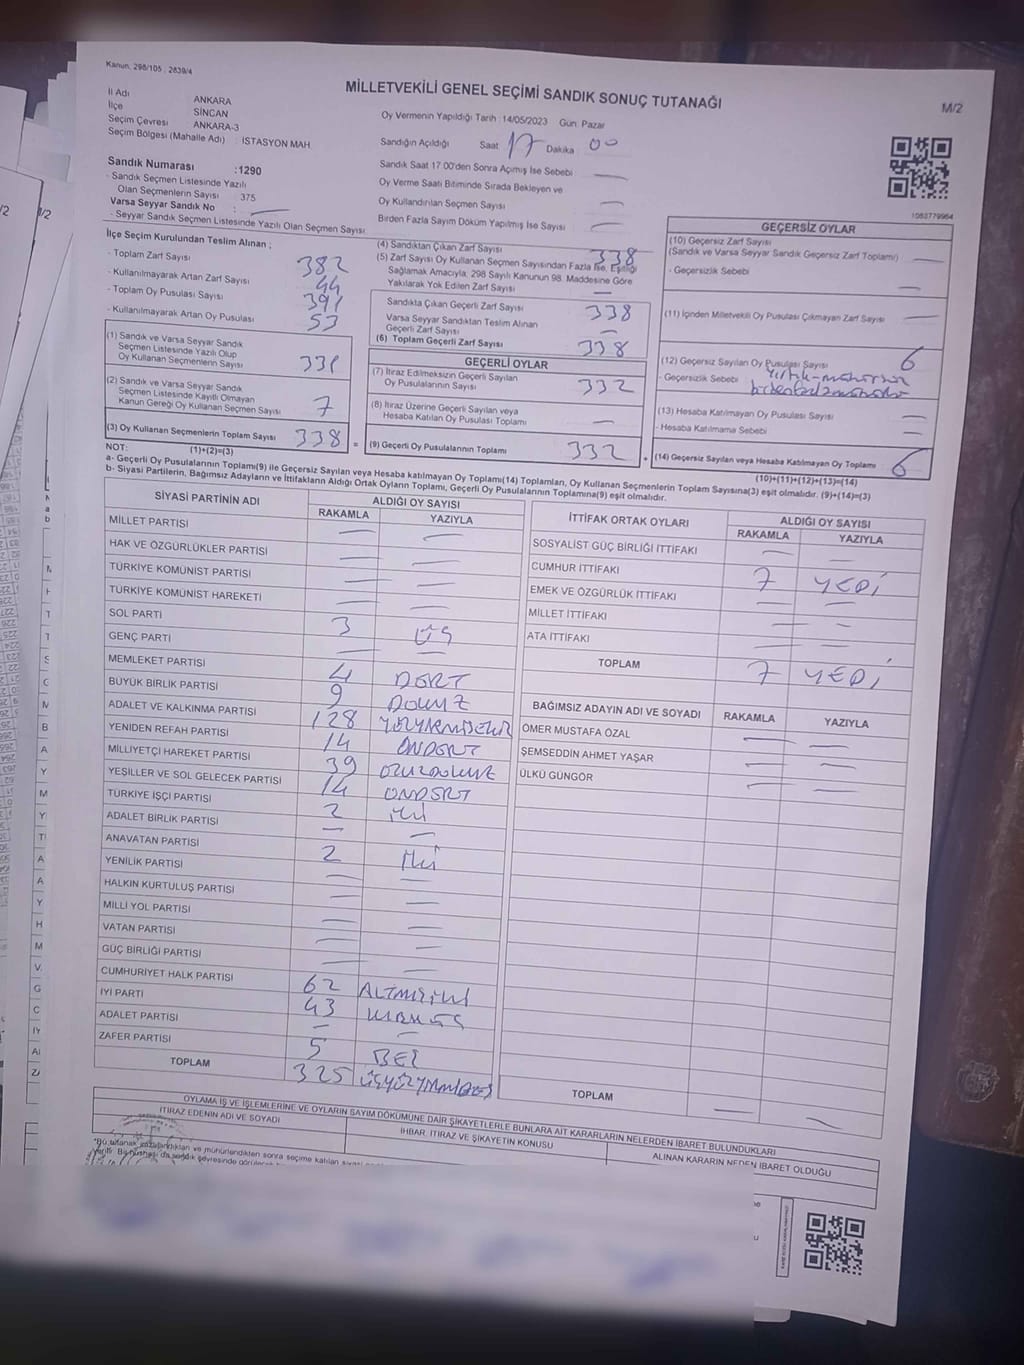 Kanun, 298/105 ; 2839/4
MİLLETVEKİLİ GENEL SEÇİMİ SANDIK SONUÇ TUTANAĞI
M/2
İl Adı ANKARA
İlçe SİNCAN
Seçim Çevresi ANKARA-3
Seçim Bölgesi (Mahalle Adı) : İSTASYON MAH.
Oy Vermenin Yapıldığı Tarih : 14/05/2023 Gün: Pazar
Sandığın Açıldığı Saat 17 Dakika 00
Sandık Saat 17.00'den Sonra Açımış İse Sebebi —
Oy Verme Saati Bitiminde Sırada Bekleyen ve
Oy Kullandırılan Seçmen Sayısı —
Birden Fazla Sayım Döküm Yapılmış İse Sayısı —
Sandık Numarası :1290
- Sandık Seçmen Listesinde Yazılı
Olan Seçmenlerin Sayısı 375
Varsa Seyyar Sandık No : —
- Seyyar Sandık Seçmen Listesinde Yazılı Olan Seçmen Sayısı:
1083779964
İlçe Seçim Kurulundan Teslim Alınan ;
- Toplam Zarf Sayısı 382
- Kullanılmayarak Artan Zarf Sayısı 44
- Toplam Oy Pusulası Sayısı 391
- Kullanılmayarak Artan Oy Pusulası 53
(1) Sandık ve Varsa Seyyar Sandık
Seçmen Listesinde Yazılı Olup
Oy Kullanan Seçmenlerin Sayısı 331
(2) Sandık ve Varsa Seyyar Sandık
Seçmen Listesinde Kayıtlı Olmayan
Kanun Gereği Oy Kullanan Seçmen Sayısı 7
(3) Oy Kullanan Seçmenlerin Toplam Sayısı 338 =
(4) Sandıktan Çıkan Zarf Sayısı 338
(5) Zarf Sayısı Oy Kullanan Seçmen Sayısından Fazla İse, Eşitliği
Sağlamak Amacıyla, 298 Sayılı Kanunun 98. Maddesine Göre
Yakılarak Yok Edilen Zarf Sayısı —
Sandıkta Çıkan Geçerli Zarf Sayısı 338
Varsa Seyyar Sandıktan Teslim Alınan
Geçerli Zarf Sayısı —
(6) Toplam Geçerli Zarf Sayısı 338
GEÇERLİ OYLAR
(7) İtiraz Edilmeksizin Geçerli Sayılan
Oy Pusulalarının Sayısı 332
(8) İtiraz Üzerine Geçerli Sayılan veya
Hesaba Katılan Oy Pusulası Toplamı —
(9) Geçerli Oy Pusulalarının Toplamı 332 +
GEÇERSİZ OYLAR
(10) Geçersiz Zarf Sayısı
(Sandık ve Varsa Seyyar Sandık Geçersiz Zarf Toplamı) —
- Geçersizlik Sebebi —
(11) İçinden Milletvekili Oy Pusulası Çıkmayan Zarf Sayısı —
(12) Geçersiz Sayılan Oy Pusulası Sayısı 6
- Geçersizlik Sebebi
(13) Hesaba Katılmayan Oy Pusulası Sayısı —
- Hesaba Katılmama Sebebi —
(14) Geçersiz Sayılan veya Hesaba Katılmayan Oy Toplamı 6
NOT: (1)+(2)=(3)
(10)+(11)+(12)+(13)=(14)
a- Geçerli Oy Pusulalarının Toplamı(9) ile Geçersiz Sayılan veya Hesaba katılmayan Oy Toplamı(14) Toplamları, Oy Kullanan Seçmenlerin Toplam Sayısına(3) eşit olmalıdır. (9)+(14)=(3)
b- Siyasi Partilerin, Bağımsız Adayların ve İttifakların Aldığı Ortak Oyların Toplamı, Geçerli Oy Pusulalarının Toplamına(9) eşit olmalıdır.
SİYASİ PARTİNİN ADI ALDIĞI OY SAYISI
RAKAMLA YAZIYLA
MİLLET PARTİSI — —
HAK VE ÖZGÜRLÜKLER PARTİSİ — —
TÜRKİYE KOMÜNİST PARTİSİ — —
TÜRKİYE KOMÜNİST HAREKETİ — —
SOL PARTİ 3 ÜÇ
GENÇ PARTİ — —
MEMLEKET PARTİSİ 4 DÖRT
BÜYÜK BİRLİK PARTİSİ 9 DOKUZ
ADALET VE KALKINMA PARTİSİ 128 YÜZYİRMİSEKİZ
YENİDEN REFAH PARTİSİ 14 ONDÖRT
MİLLİYETÇİ HAREKET PARTİSİ 39 OTUZDOKUZ
YEŞİLLER VE SOL GELECEK PARTİSİ 14 ONDÖRT
TÜRKİYE İŞÇİ PARTİSİ 2 İKİ
ADALET BİRLİK PARTİSİ — —
ANAVATAN PARTİSİ 2 İKİ
YENİLİK PARTİSİ — —
HALKIN KURTULUŞ PARTİSİ — —
MİLLİ YOL PARTİSİ — —
VATAN PARTİSİ — —
GÜÇ BİRLİĞİ PARTİSİ — —
CUMHURİYET HALK PARTİSİ 62 ALTMIŞİKİ
İYİ PARTİ 43 KIRKÜÇ
ADALET PARTİSİ — —
ZAFER PARTİSİ 5 BEŞ
TOPLAM 325 ÜÇYÜZYİRMİBEŞ
İTTİFAK ORTAK OYLARI ALDIĞI OY SAYISI
RAKAMLA YAZIYLA
SOSYALİST GÜÇ BİRLİĞİ İTTİFAKI — —
CUMHUR İTTİFAKI 7 YEDİ
EMEK VE ÖZGÜRLÜK İTTİFAKI — —
MİLLET İTTİFAKI — —
ATA İTTİFAKI — —
TOPLAM 7 YEDİ
BAĞIMSIZ ADAYIN ADI VE SOYADI RAKAMLA YAZIYLA
ÖMER MUSTAFA ÖZAL — —
ŞEMSEDDİN AHMET YAŞAR — —
ÜLKÜ GÜNGÖR — —
TOPLAM — —
OYLAMA İŞ VE İŞLEMLERİNE VE OYLARIN SAYIM DÖKÜMÜNE DAİR ŞİKAYETLERLE BUNLARA AİT KARARLARIN NELERDEN İBARET BULUNDUKLARI
İTİRAZ EDENİN ADI VE SOYADI
İHBAR, İTİRAZ VE ŞİKAYETİN KONUSU
ALINAN KARARIN NEDEN İBARET OLDUĞU